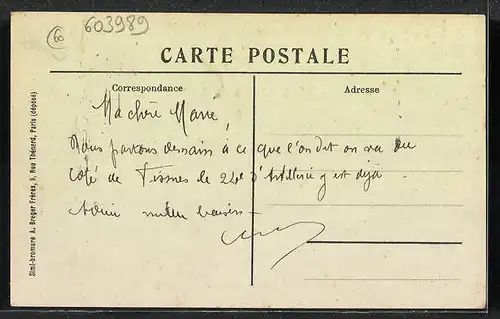 60
603989
CARTE POSTALE
Correspondance
Adresse
Ma chère Marie,
Nous partons demain à ce que l'on dit on va du
coté de Fismes le 24e d'Artillerie y est déjà
mille baisers
Simi-bromure A. Breger Frères, 9, Rue Thénard, Paris (déposé)